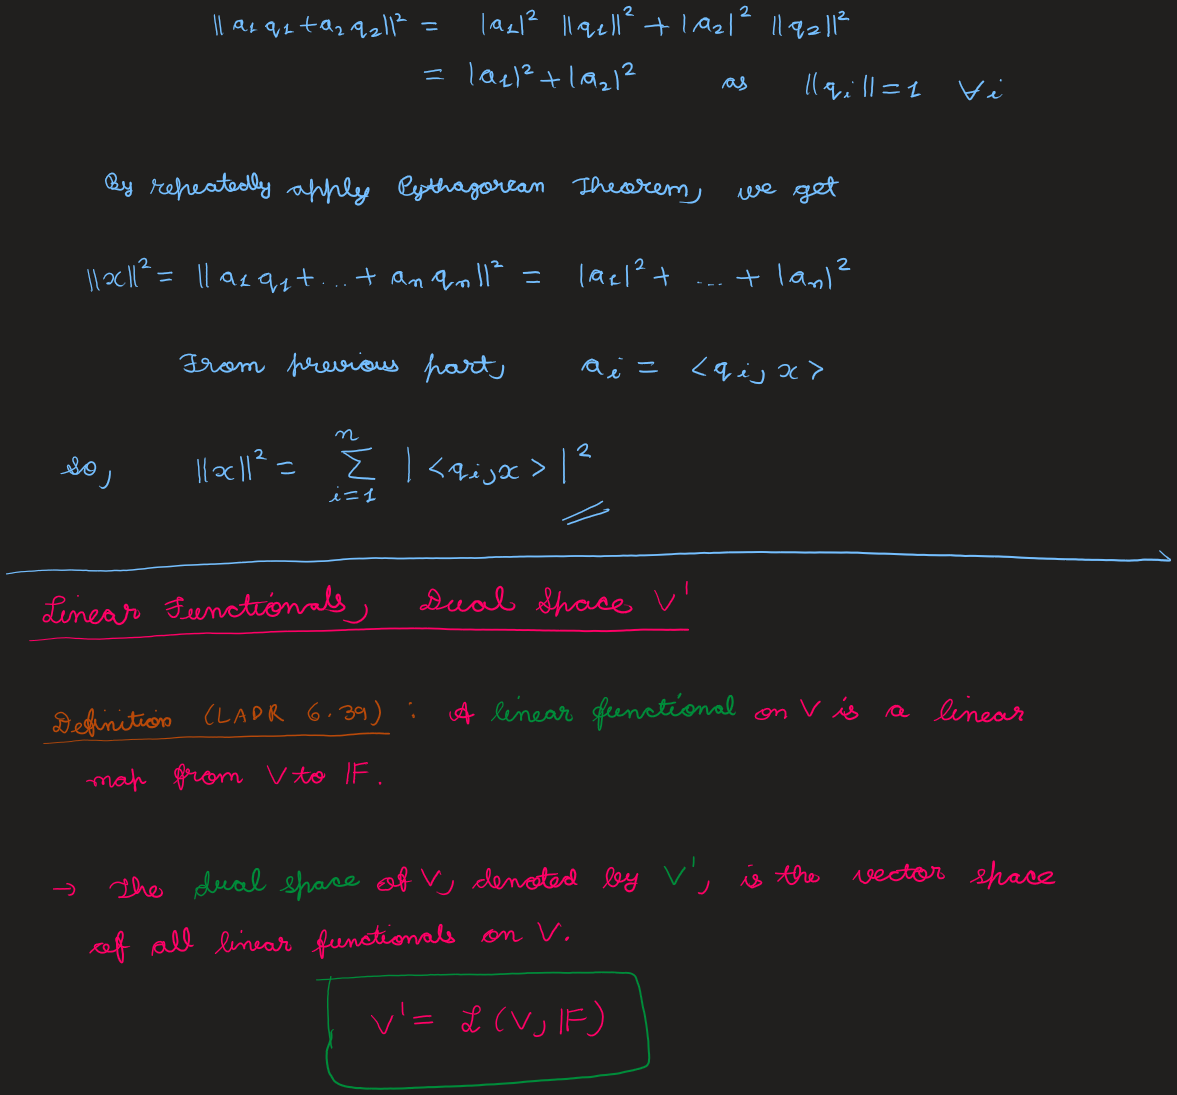 ||a₁q₁+a₂q₂||² = |a₁|² ||q₁||² + |a₂|² ||q₂||²
= |a₁|²+|a₂|² as ||qᵢ||=1 ∀i
By repeatedly apply Pythagorean Theorem, we get
||x||² = ||a₁q₁+...+ aₙqₙ||² = |a₁|²+ ... + |aₙ|²
From previous part, aᵢ = <qᵢ, x>
so, ||x||² = ∑ᵢ₌₁ⁿ |<qᵢ,x>|²
Linear Functionals, Dual Space V'
Definition (LADR 6.39) : A linear functional on V is a linear
map from V to 𝔽.
→ The dual space of V, denoted by V', is the vector space
of all linear functionals on V.
V' = ℒ(V, 𝔽)